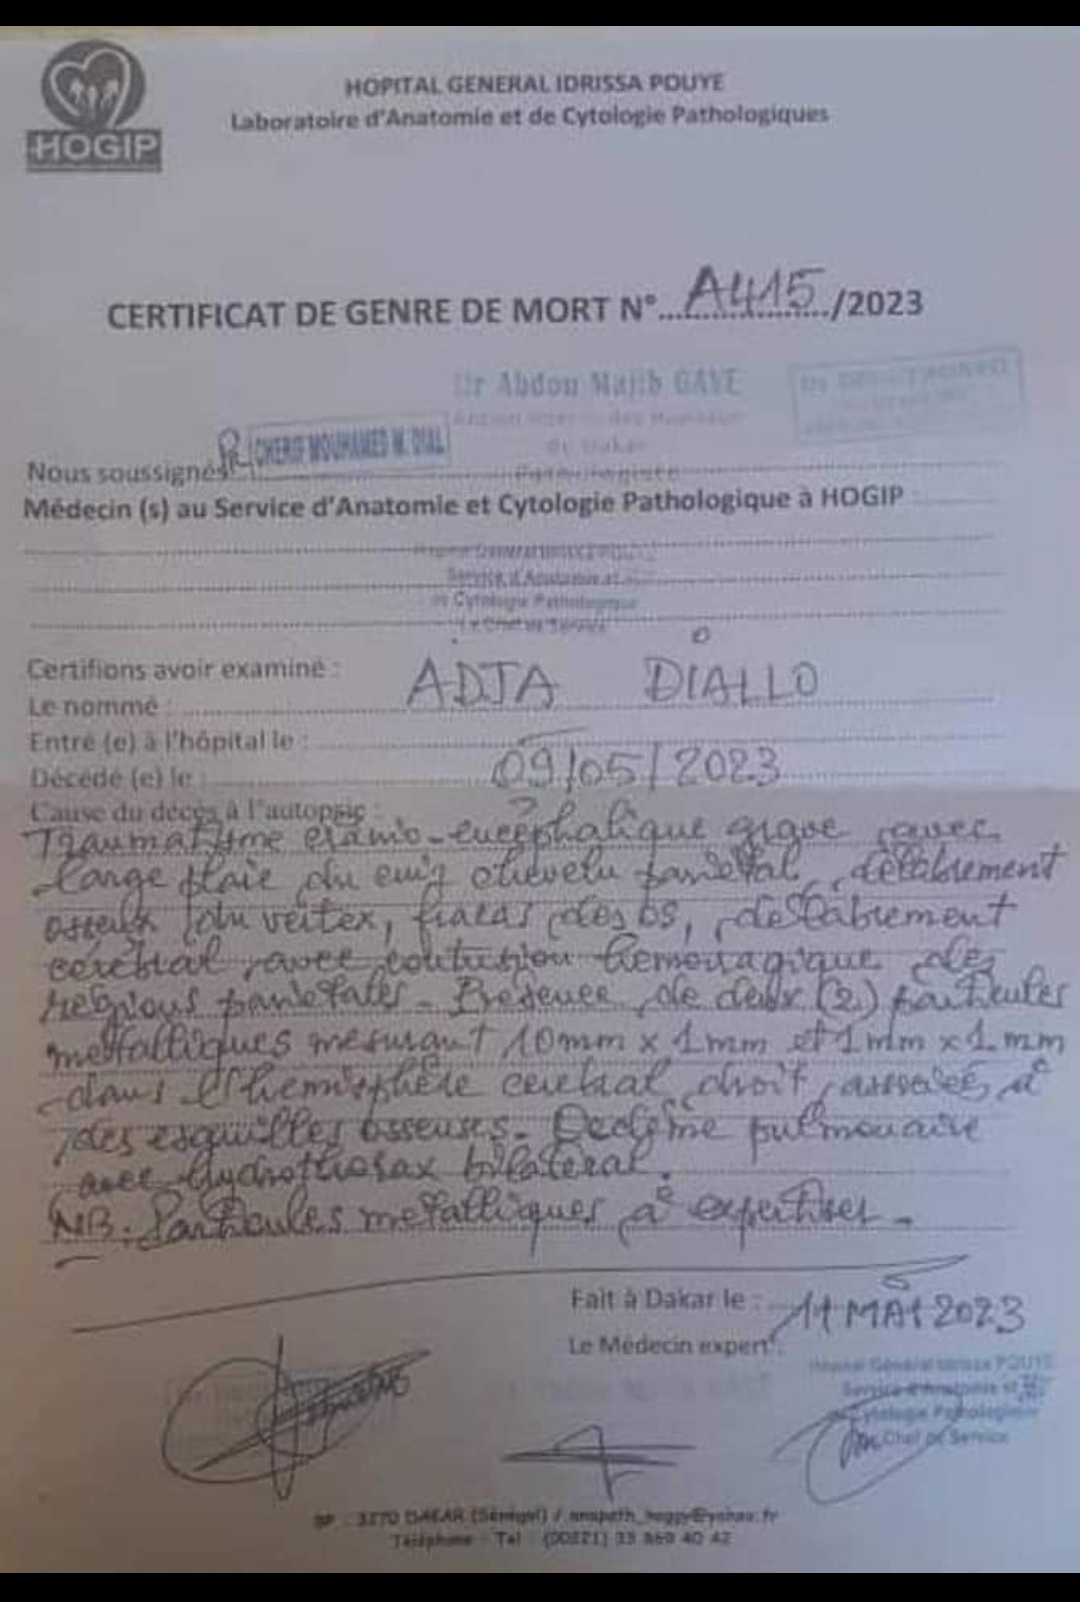 HOGIP
HOPITAL GENERAL IDRISSA POUYE
Laboratoire d'Anatomie et de Cytologie Pathologiques
CERTIFICAT DE GENRE DE MORT N° A415 /2023
Dr Abdou Majib GAYE
Pathologiste
Pr CHERIF MOUHAMED M. DIAL
Nous soussignés
Médecin (s) au Service d'Anatomie et Cytologie Pathologique à HOGIP :
Service d'Anatomie et
de Cytologie Pathologique
Le Chef de Service
Certifions avoir examiné :
Le nommé : ADJA DIALLO
Entré (e) à l'hôpital le :
Décédé (e) le : 09/05/2023
Cause du décès à l'autopsie :
Traumatisme crânio-encéphalique grave avec
large plaie du cuir chevelu pariétal, délabrement
osseux du vertex, fracas des os, délabrement
cérébral avec contusion hémorragique des
régions pariétales - Présence de deux (2) particules
métalliques mesurant 10mm x 1mm et 1mm x 1mm
dans l'hémisphère cérébral droit, associés à
des esquilles osseuses. Oedème pulmonaire
avec hydrothorax bilatéral.
NB: Particules métalliques à expertiser -
Fait à Dakar le : 11 MAI 2023
Le Médecin expert :
Hôpital Général Idrissa POUYE
Service d'Anatomie et
Cytologie Pathologique
Chef de Service
BP : 3270 DAKAR (Sénégal) /
Téléphone : Tel : (00221) 33 869 40 42